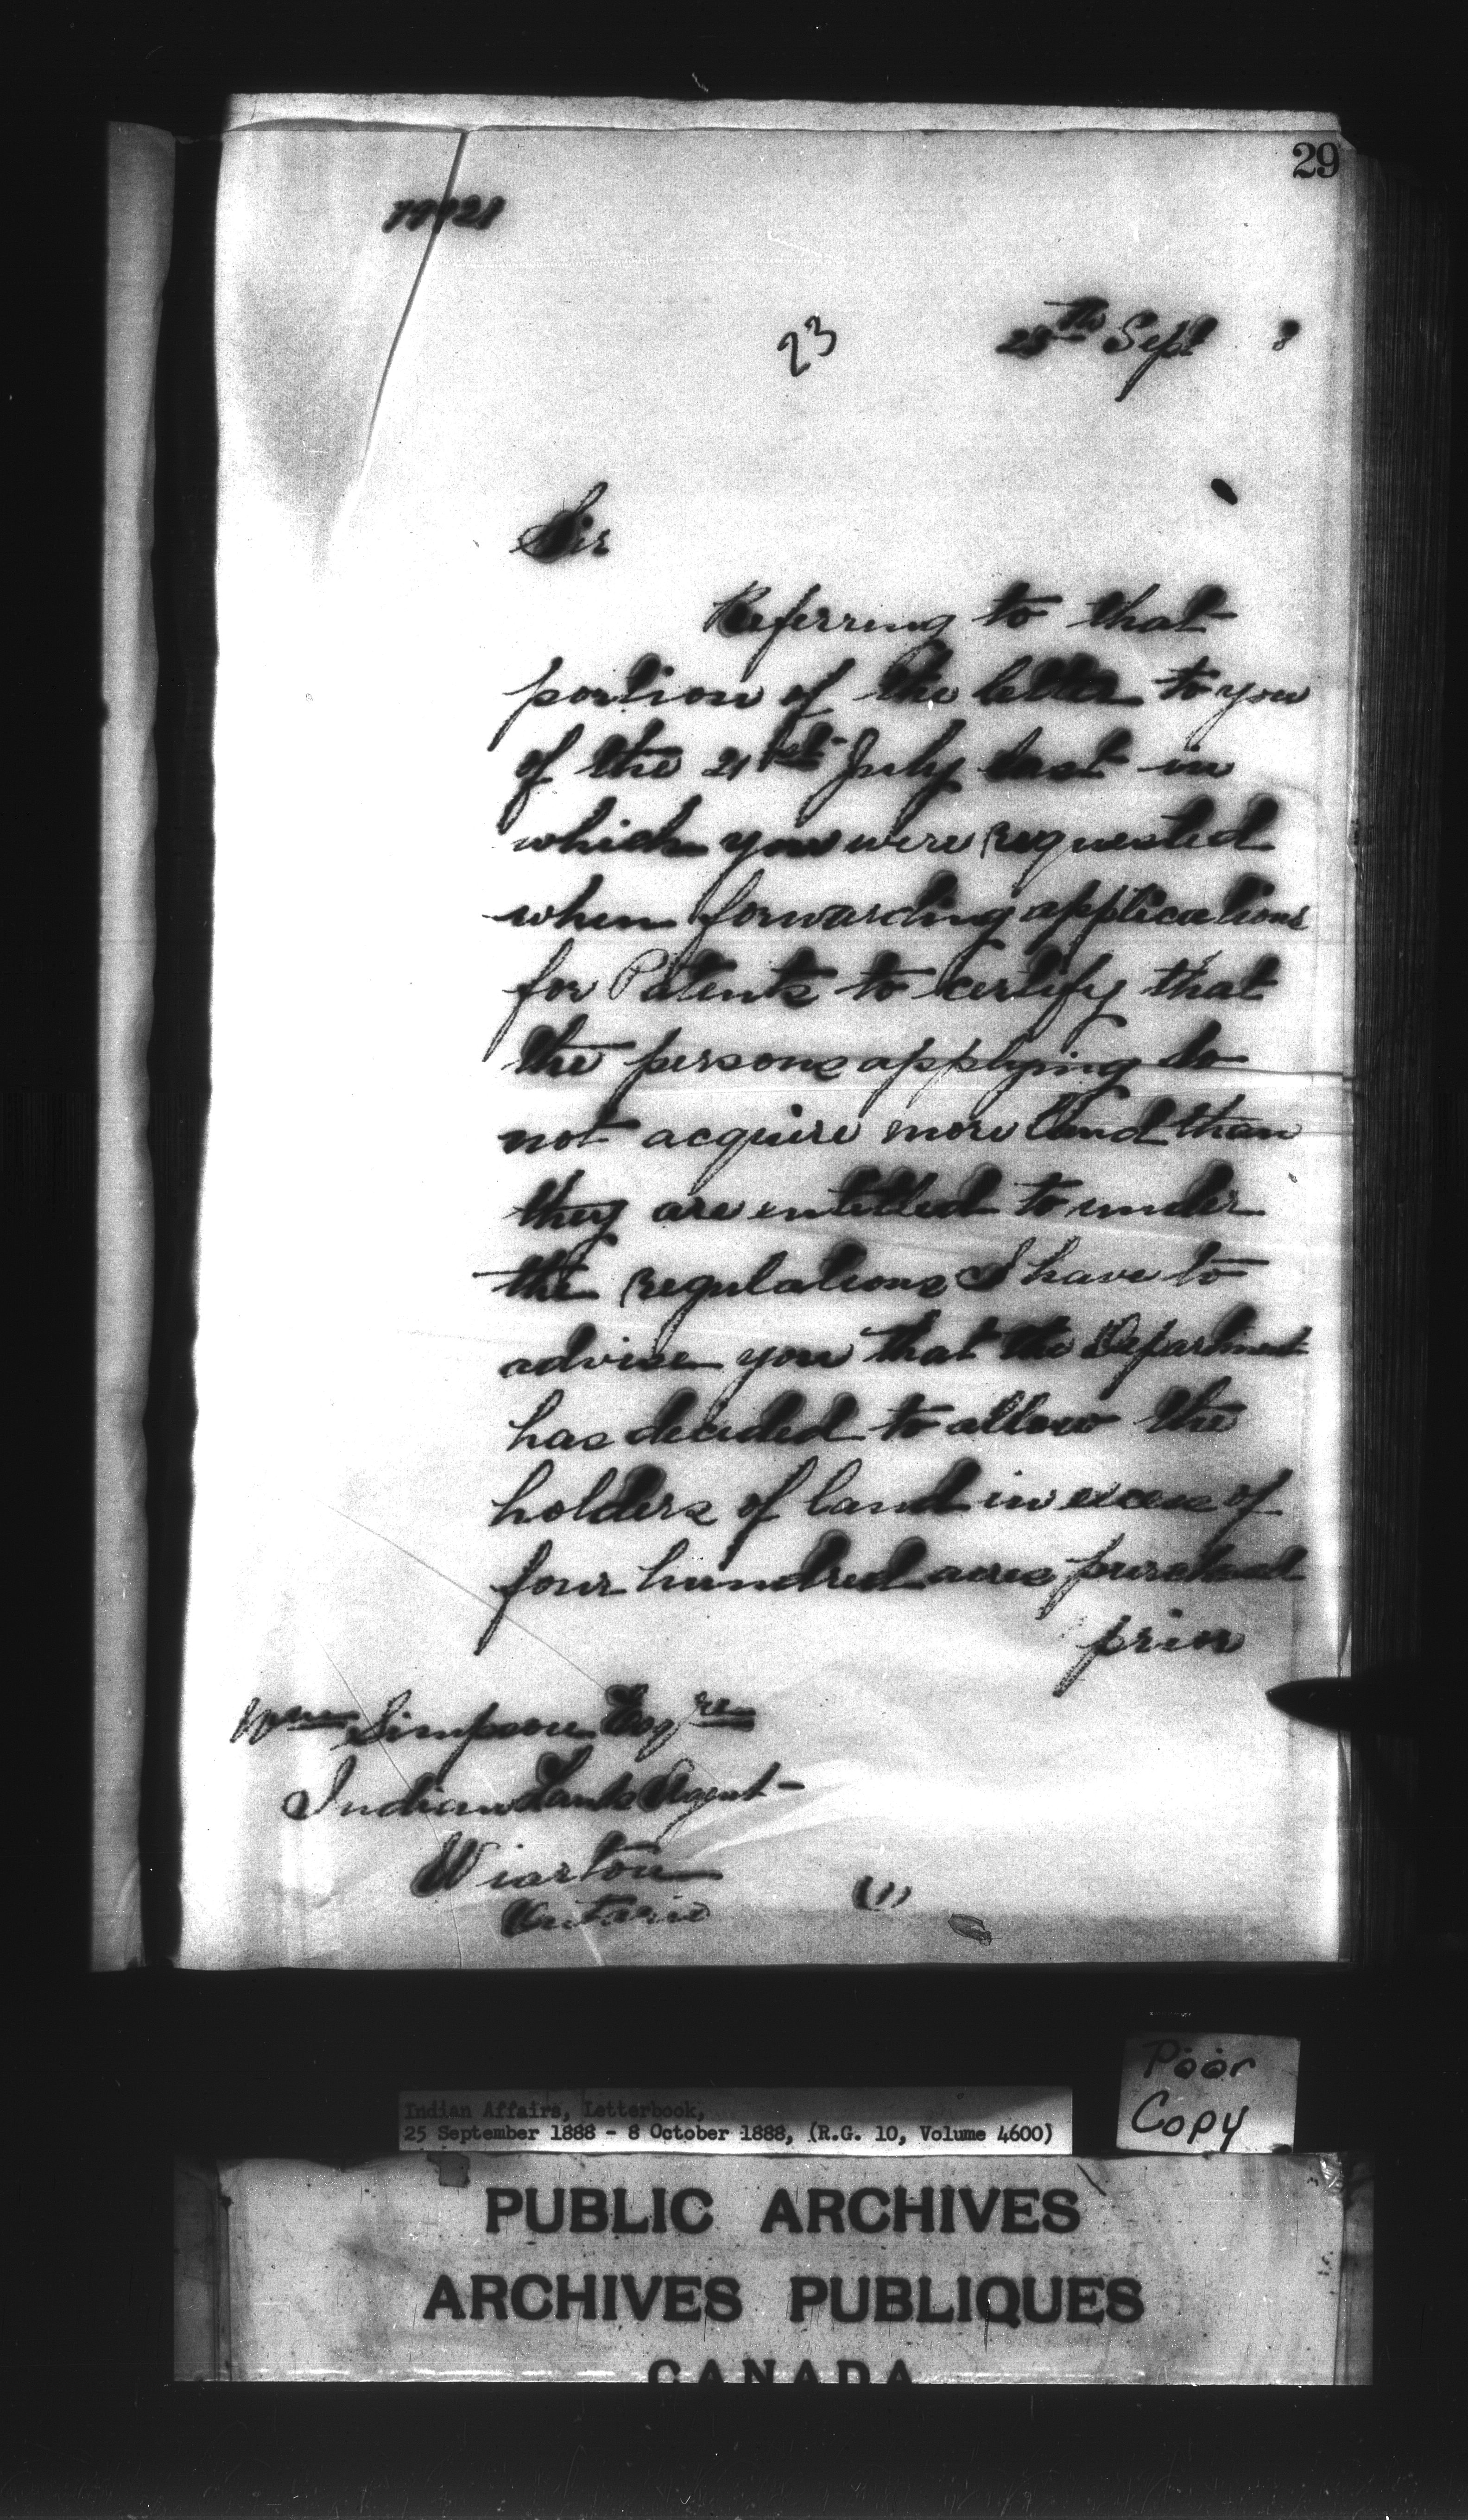 29
23
25th Sept 8
Sir
Referring to that
portion of the letter to you
of the 21st July last in
which you were requested
when forwarding applications
for Patents to certify that
the persons applying do
not acquire more land than
they are entitled to under
the regulations I have to
advise you that the Department
has decided to allow the
holders of land in excess of
four hundred acres purchased
prior
Wm Simpson Esqre
Indian Lands Agent
Wiarton
Ontario
(1)
Poor
Copy
Indian Affairs, Letterbook,
25 September 1888 - 8 October 1888, (R.G. 10, Volume 4600)
PUBLIC ARCHIVES
ARCHIVES PUBLIQUES
CANADA